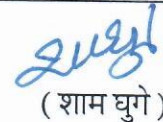 ( शाम घुगे )